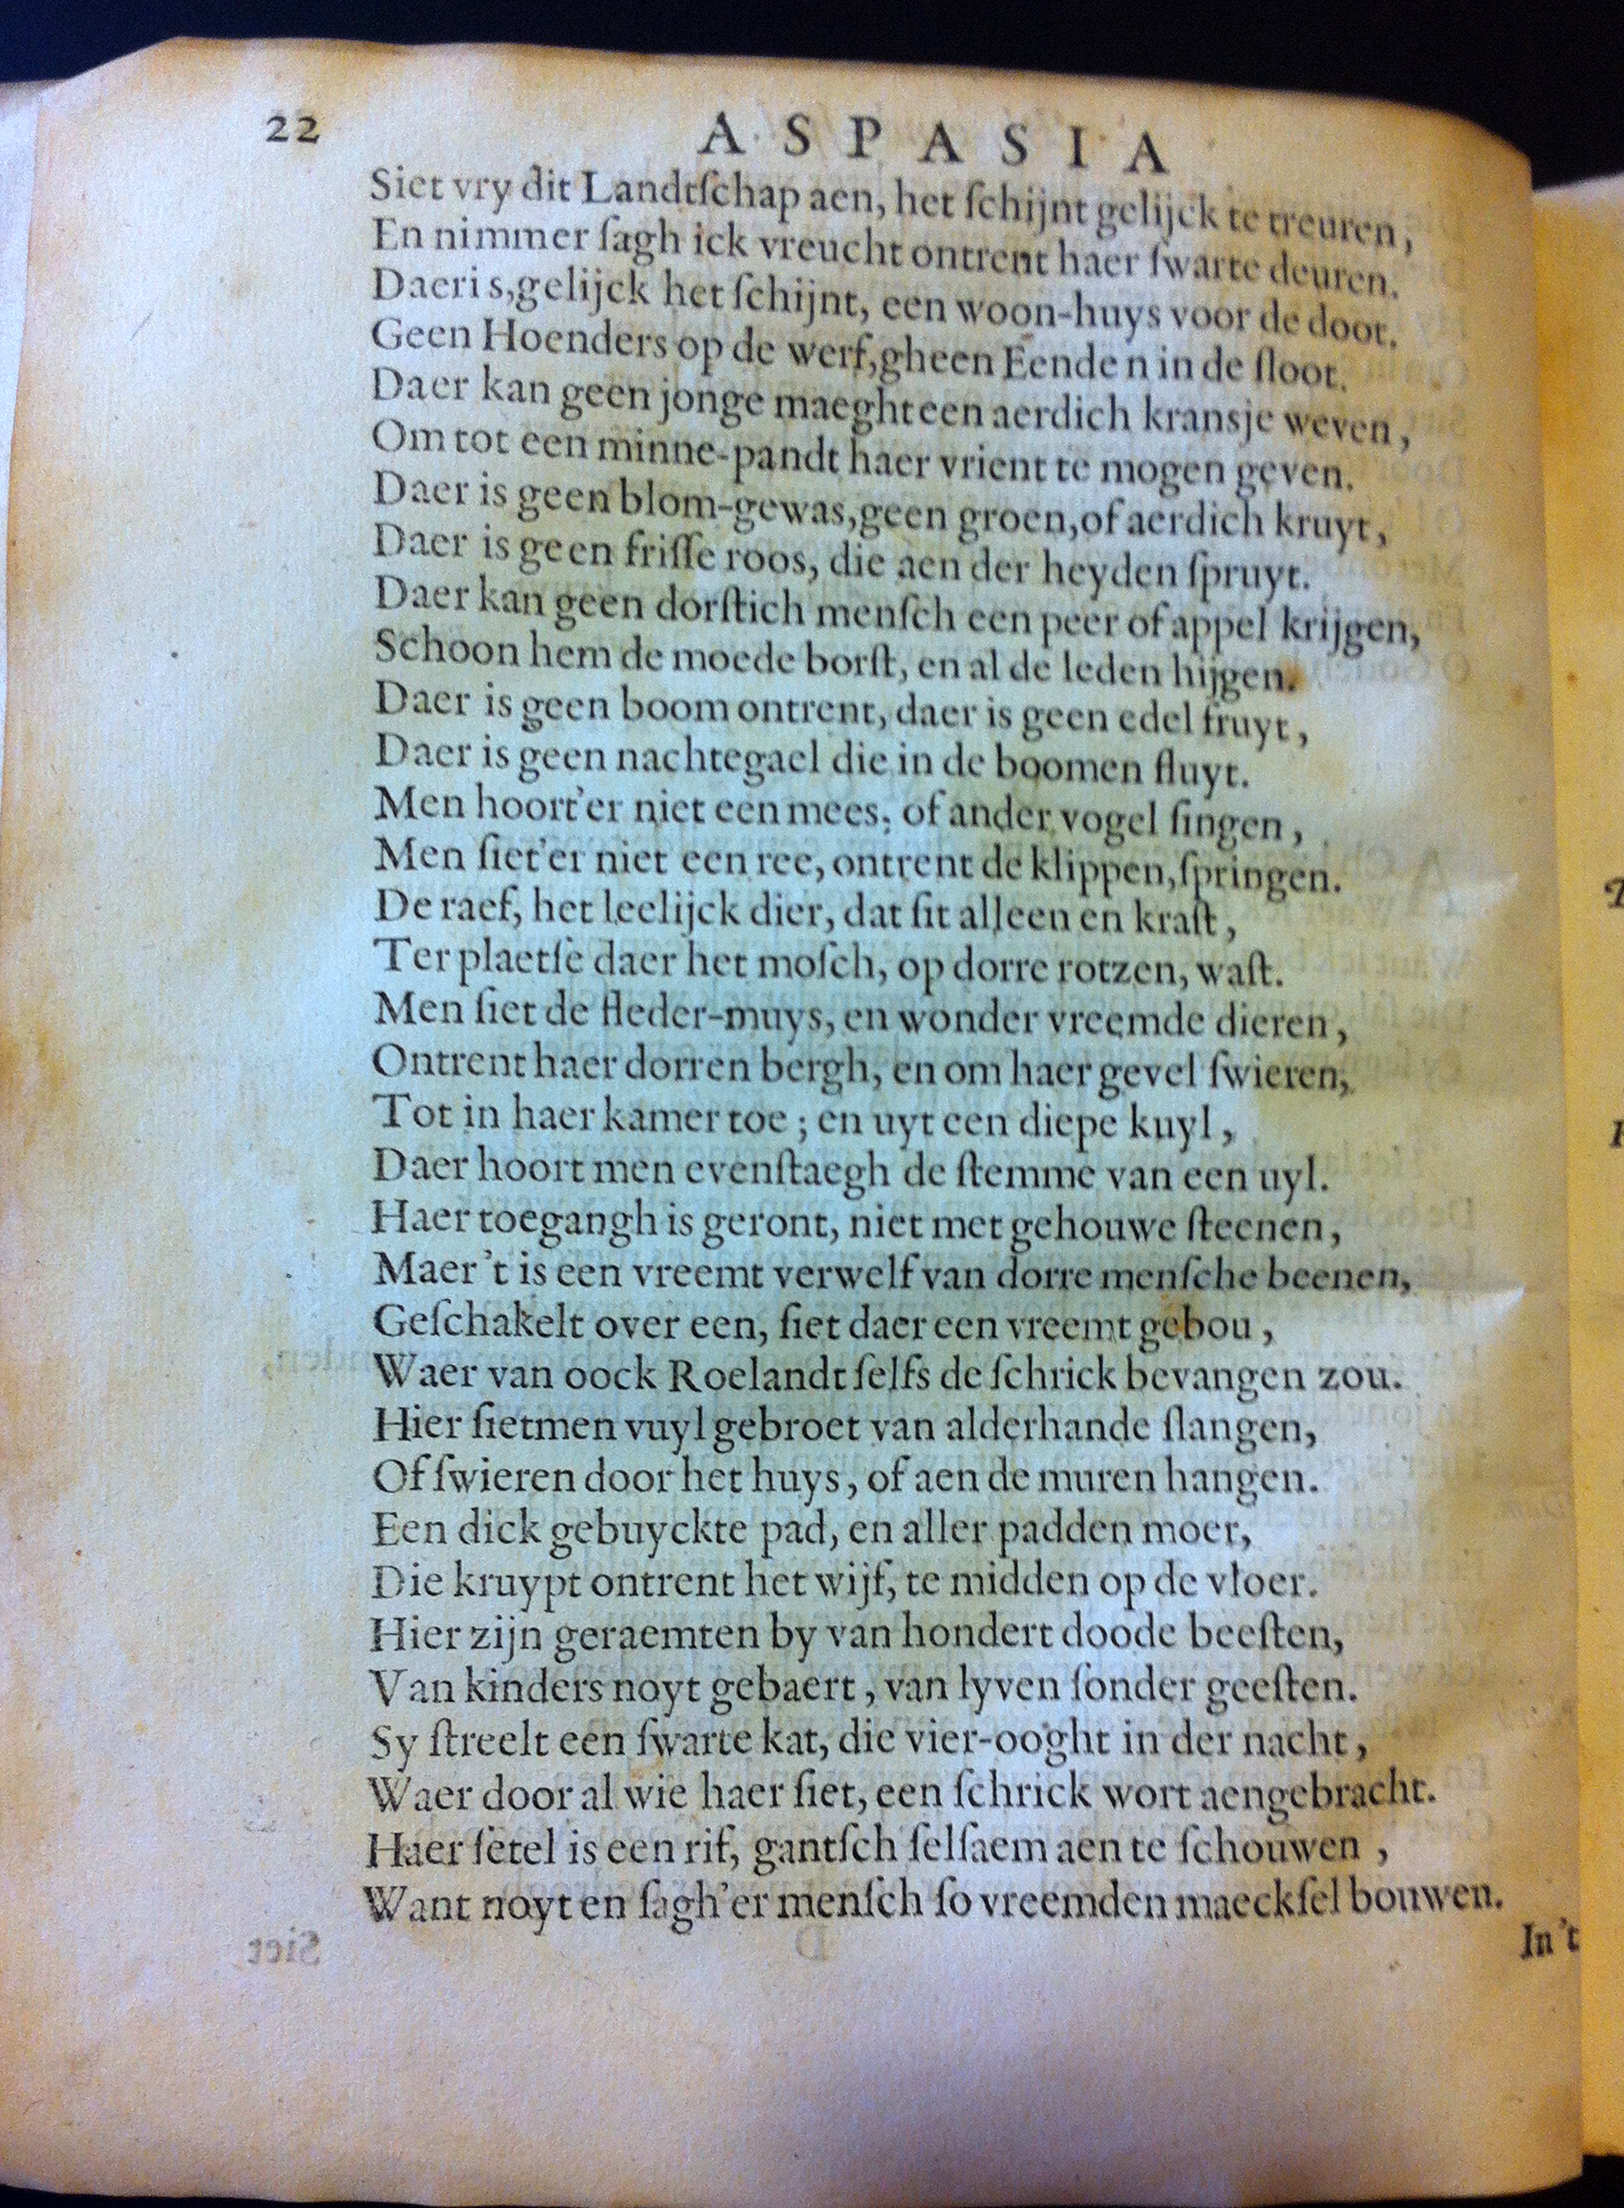 22
A S P A S I A
Siet vry dit Landtſchap aen, het ſchijnt gelijck te treuren,
En nimmer ſagh ick vreucht ontrent haer ſwarte deuren.
Daeri s,gelijck het ſchijnt, een woon-huys voor de doot.
Geen Hoenders op de werf,gheen Eende n in de ſloot.
Daer kan geen jonge maeght een aerdich kransje weven,
Om tot een minne-pandt haer vrient te mogen geven.
Daer is geen blom-gewas,geen groen,of aerdich kruyt,
Daer is geen friſſe roos, die aen der heyden ſpruyt.
Daer kan geen dorſtich menſch een peer of appel krijgen,
Schoon hem de moede borſt, en al de leden hijgen.
Daer is geen boom ontrent, daer is geen edel fruyt,
Daer is geen nachtegael die in de boomen fluyt.
Men hoort'er niet een mees, of ander vogel ſingen,
Men ſiet'er niet een ree, ontrent de klippen,ſpringen.
De raef, het leelijck dier, dat ſit alleen en kraſt,
Ter plaetſe daer het moſch, op dorre rotzen, waſt.
Men ſiet de fleder-muys, en wonder vreemde dieren,
Ontrent haer dorren bergh, en om haer gevel ſwieren,
Tot in haer kamer toe; en uyt een diepe kuyl,
Daer hoort men evenſtaegh de ſtemme van een uyl.
Haer toegangh is geront, niet met gehouwe ſteenen,
Maer't is een vreemt verwelf van dorre menſche beenen,
Geſchakelt over een, ſiet daer een vreemt gebou,
Waer van oock Roelandt ſelfs de ſchrick bevangen zou.
Hier ſietmen vuyl gebroet van alderhande ſlangen,
Of ſwieren door het huys, of aen de muren hangen.
Een dick gebuyckte pad, en aller padden moer,
Die kruypt ontrent het wijf, te midden op de vloer.
Hier zijn geraemten by van hondert doode beeſten,
Van kinders noyt gebaert, van lyven ſonder geeſten.
Sy ſtreelt een ſwarte kat, die vier-ooght in der nacht,
Waer door al wie haer ſiet, een ſchrick wort aengebracht.
Haer ſetel is een rif, gantſch ſelſaem aen te ſchouwen,
Want noyt en ſagh'er menſch ſo vreemden maeckſel bouwen.
In't